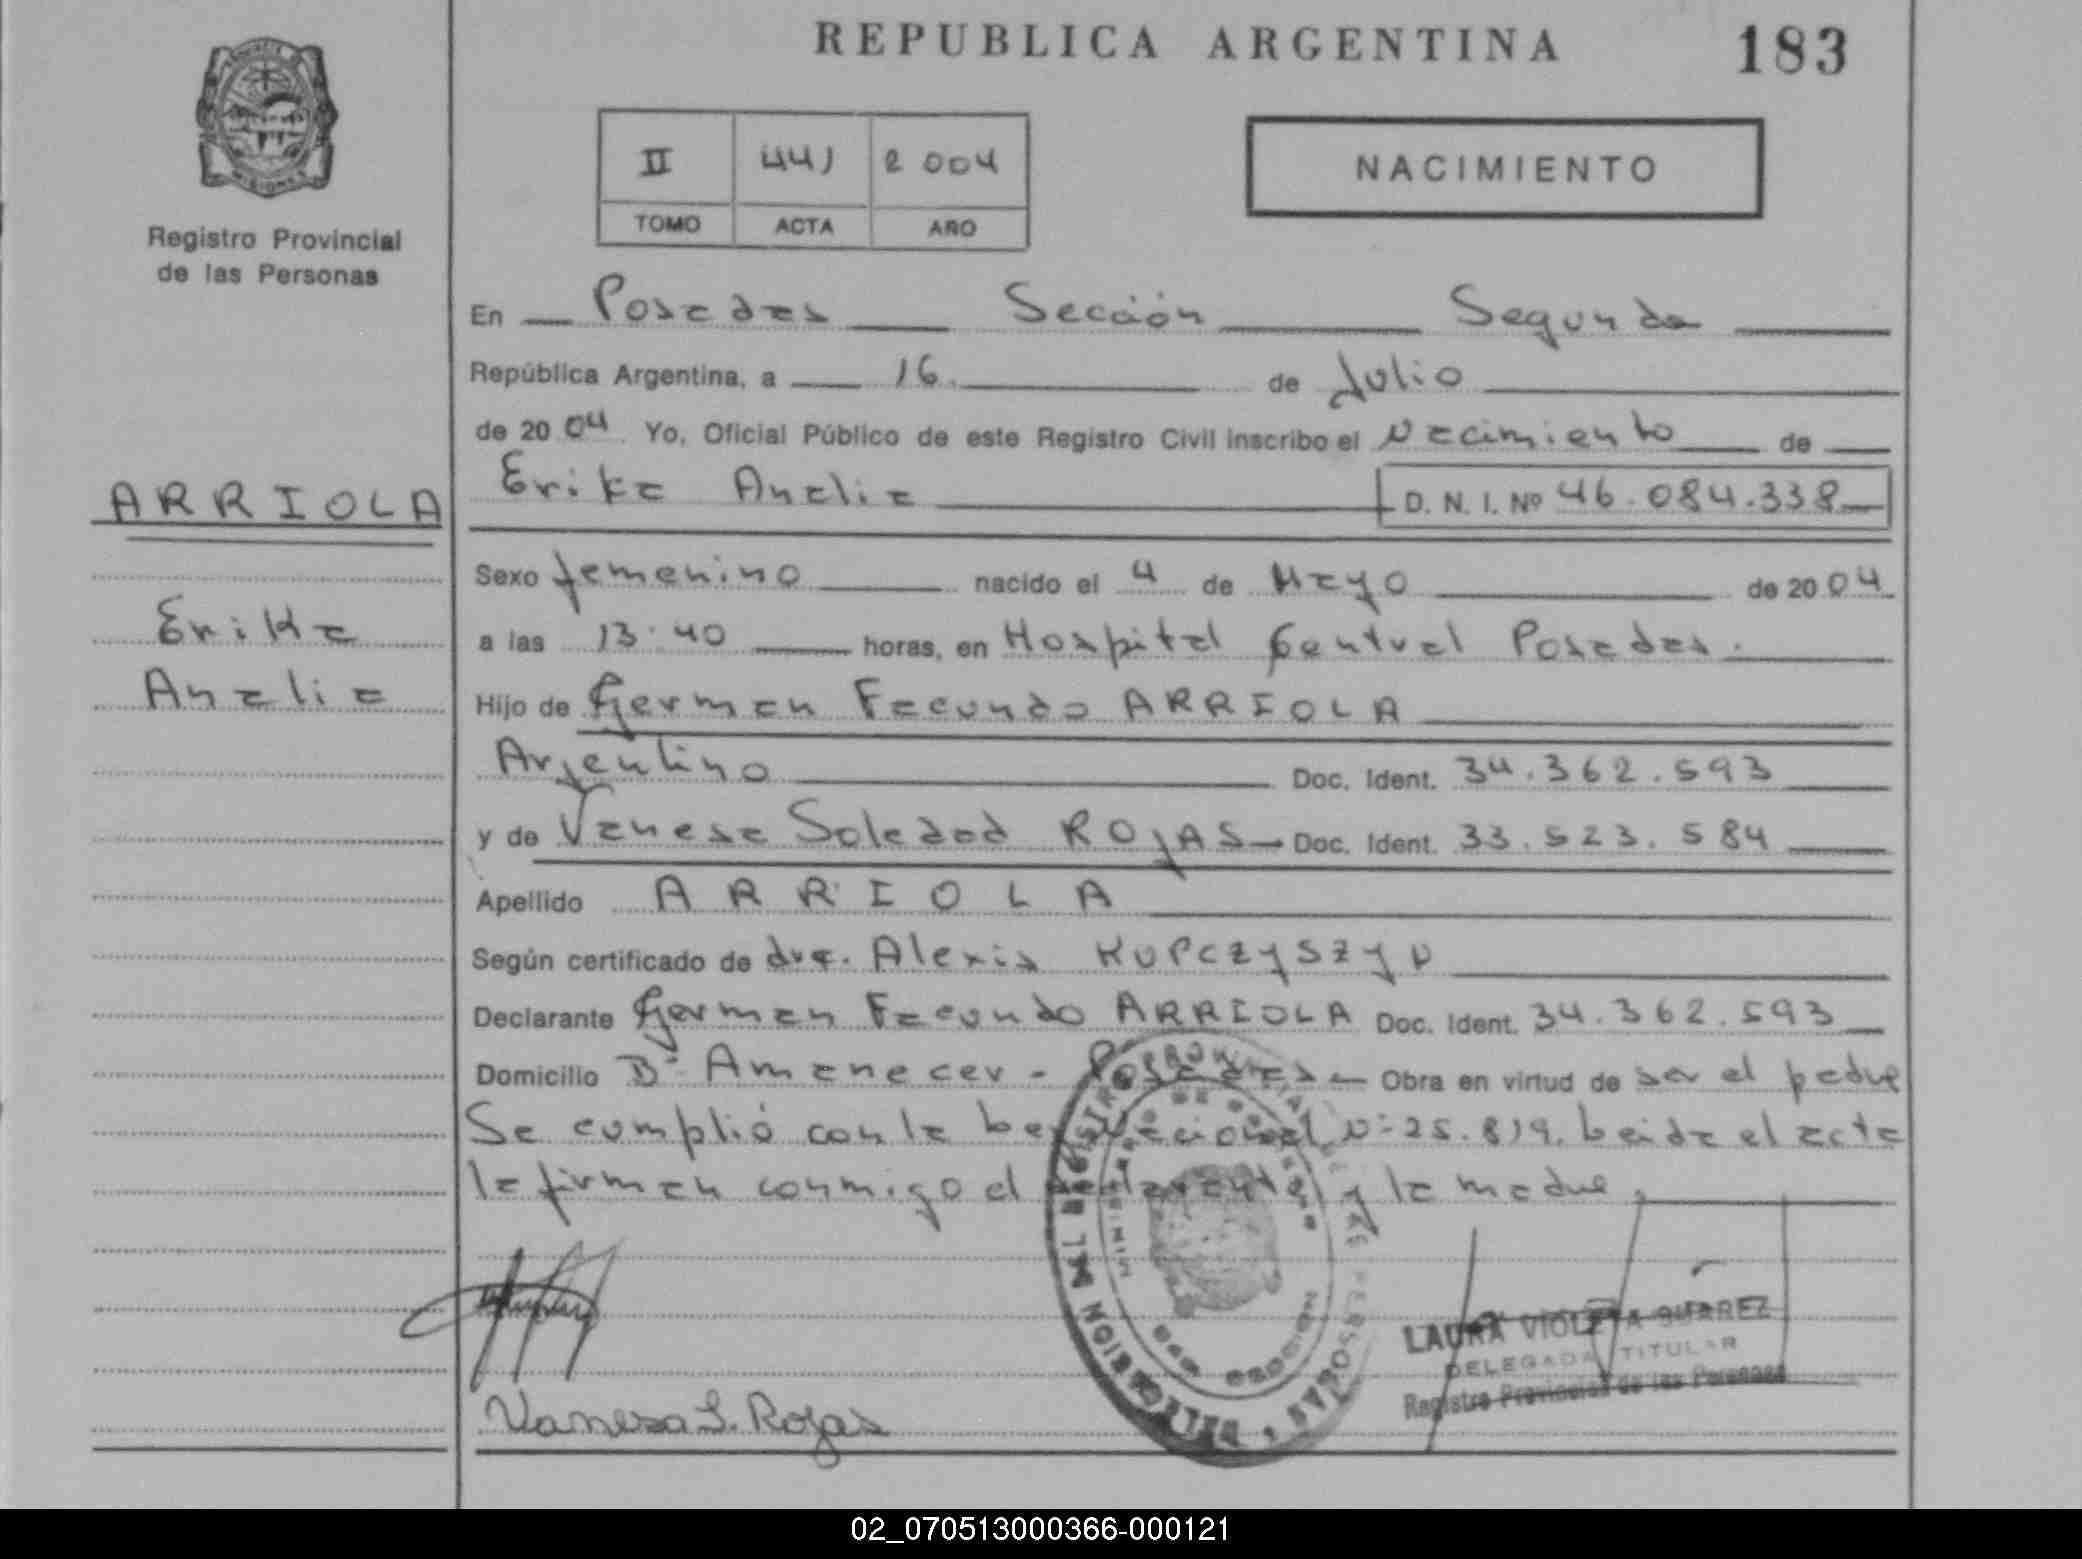 REPUBLICA ARGENTINA 183
Registro Provincial
de las Personas
MISIONES
II 441 2004
TOMO ACTA AÑO
NACIMIENTO
En Posadas Sección Segunda
República Argentina, a 16 de Julio
de 2004 Yo, Oficial Público de este Registro Civil inscribo el Nacimiento de
Erika Analia D. N. I. Nº 46.084.338
ARRIOLA
Erika
Analia
Sexo femenino nacido el 4 de Mayo de 2004
a las 13.40 horas, en Hospital Central Posadas.
Hijo de German Facundo ARRIOLA
Argentino Doc. Ident. 34.362.593
y de Vanesa Soledad ROJAS Doc. Ident. 33.523.584
Apellido ARRIOLA
Según certificado de dra. Alexis KUPCZYSZYN
Declarante German Facundo ARRIOLA Doc. Ident. 34.362.593
Domicilio Bº Amanecer - Posadas Obra en virtud de ser el padre
Se cumplió con la Ley Nacional Nº 25.819. Leida el acta
la firman conmigo el declarante y la madre.
Vanesa S. Rojas
LAURA VIOLETA SUAREZ
DELEGADA TITULAR
Registro Provincial de las Personas
02_070513000366-000121